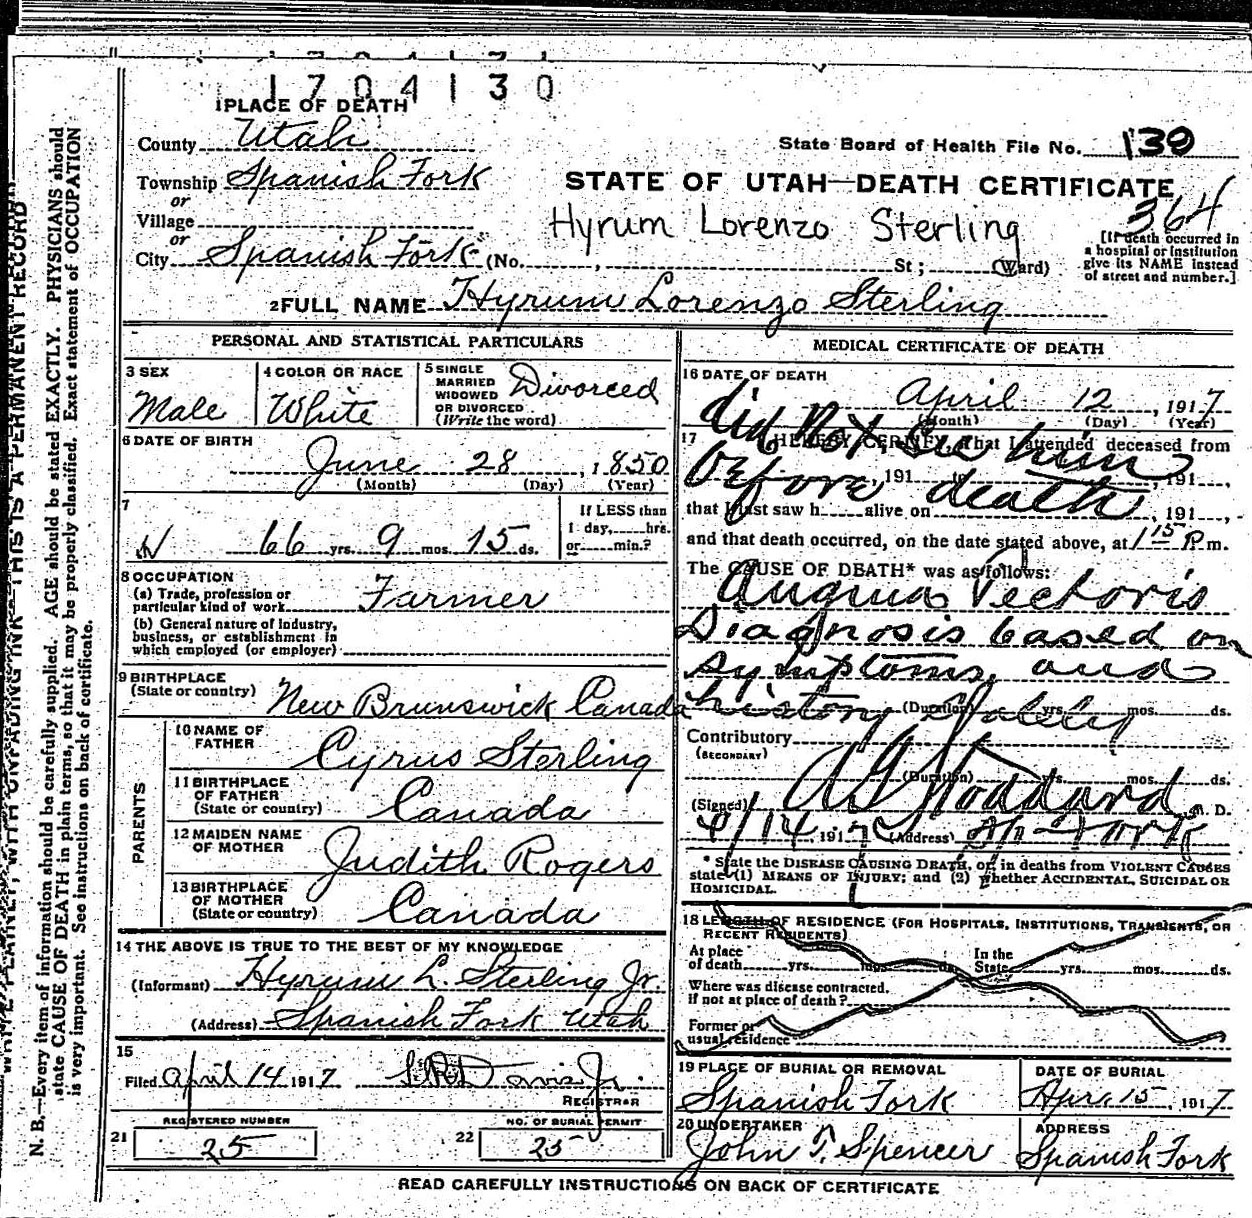 1704130
1 PLACE OF DEATH
County Utah
State Board of Health File No. 130
Township Spanish Fork
or
STATE OF UTAH—DEATH CERTIFICATE
364
Village
or
Hyrum Lorenzo Sterling
City Spanish Fork (No. , St; (Ward)
[If death occurred in
a hospital or institution
give its NAME instead
of street and number.]
2 FULL NAME Hyrum Lorenzo Sterling
PERSONAL AND STATISTICAL PARTICULARS
3 SEX
Male
4 COLOR OR RACE
White
5 SINGLE
MARRIED
WIDOWED
OR DIVORCED
(Write the word)
Divorced
6 DATE OF BIRTH
June 28, 1850
(Month) (Day) (Year)
7
66 yrs. 9 mos. 15 ds.
If LESS than
1 day, hrs.
or min.?
8 OCCUPATION
(a) Trade, profession or
particular kind of work Farmer
(b) General nature of industry,
business, or establishment in
which employed (or employer)
9 BIRTHPLACE
(State or country) New Brunswick Canada
PARENTS
10 NAME OF
FATHER Cyrus Sterling
11 BIRTHPLACE
OF FATHER
(State or country) Canada
12 MAIDEN NAME
OF MOTHER Judith Rogers
13 BIRTHPLACE
OF MOTHER
(State or country) Canada
14 THE ABOVE IS TRUE TO THE BEST OF MY KNOWLEDGE
(Informant) Hyrum L. Sterling Jr.
(Address) Spanish Fork Utah
15
Filed April 14 1917 Davis Jr.
REGISTRAR
REGISTERED NUMBER
21 25
NO. OF BURIAL PERMIT
22 25
MEDICAL CERTIFICATE OF DEATH
16 DATE OF DEATH
April 12, 1917
(Month) (Day) (Year)
did not see him
17 I HEREBY CERTIFY, That I attended deceased from
before death
, 191 , , 191 ,
that I last saw h alive on , 191 ,
and that death occurred, on the date stated above, at 1 15 P. m.
The CAUSE OF DEATH* was as follows:
Angina Pectoris
Diagnosis based on
symptoms and
history
(Duration) yrs. mos. ds.
Contributory
(SECONDARY)
(Duration) yrs. mos. ds.
(Signed) Stoddard M. D.
4/14 1917 (Address) Sp Fork
* State the DISEASE CAUSING DEATH, or, in deaths from VIOLENT CAUSES
state (1) MEANS OF INJURY; and (2) whether ACCIDENTAL, SUICIDAL OR
HOMICIDAL.
18 LENGTH OF RESIDENCE (FOR HOSPITALS, INSTITUTIONS, TRANSIENTS, OR
RECENT RESIDENTS)
At place
of death yrs. mos. ds.
In the
State yrs. mos. ds.
Where was disease contracted.
if not at place of death?
Former or
usual residence
19 PLACE OF BURIAL OR REMOVAL
Spanish Fork
DATE OF BURIAL
Apr. 15, 1917
20 UNDERTAKER
John T. Spencer
ADDRESS
Spanish Fork
READ CAREFULLY INSTRUCTIONS ON BACK OF CERTIFICATE
WRITE PLAINLY, WITH UNFADING INK—THIS IS A PERMANENT RECORD
N. B.—Every item of information should be carefully supplied. AGE should be stated EXACTLY. PHYSICIANS should
state CAUSE OF DEATH in plain terms, so that it may be properly classified. Exact statement of OCCUPATION
is very important. See instructions on back of certificate.